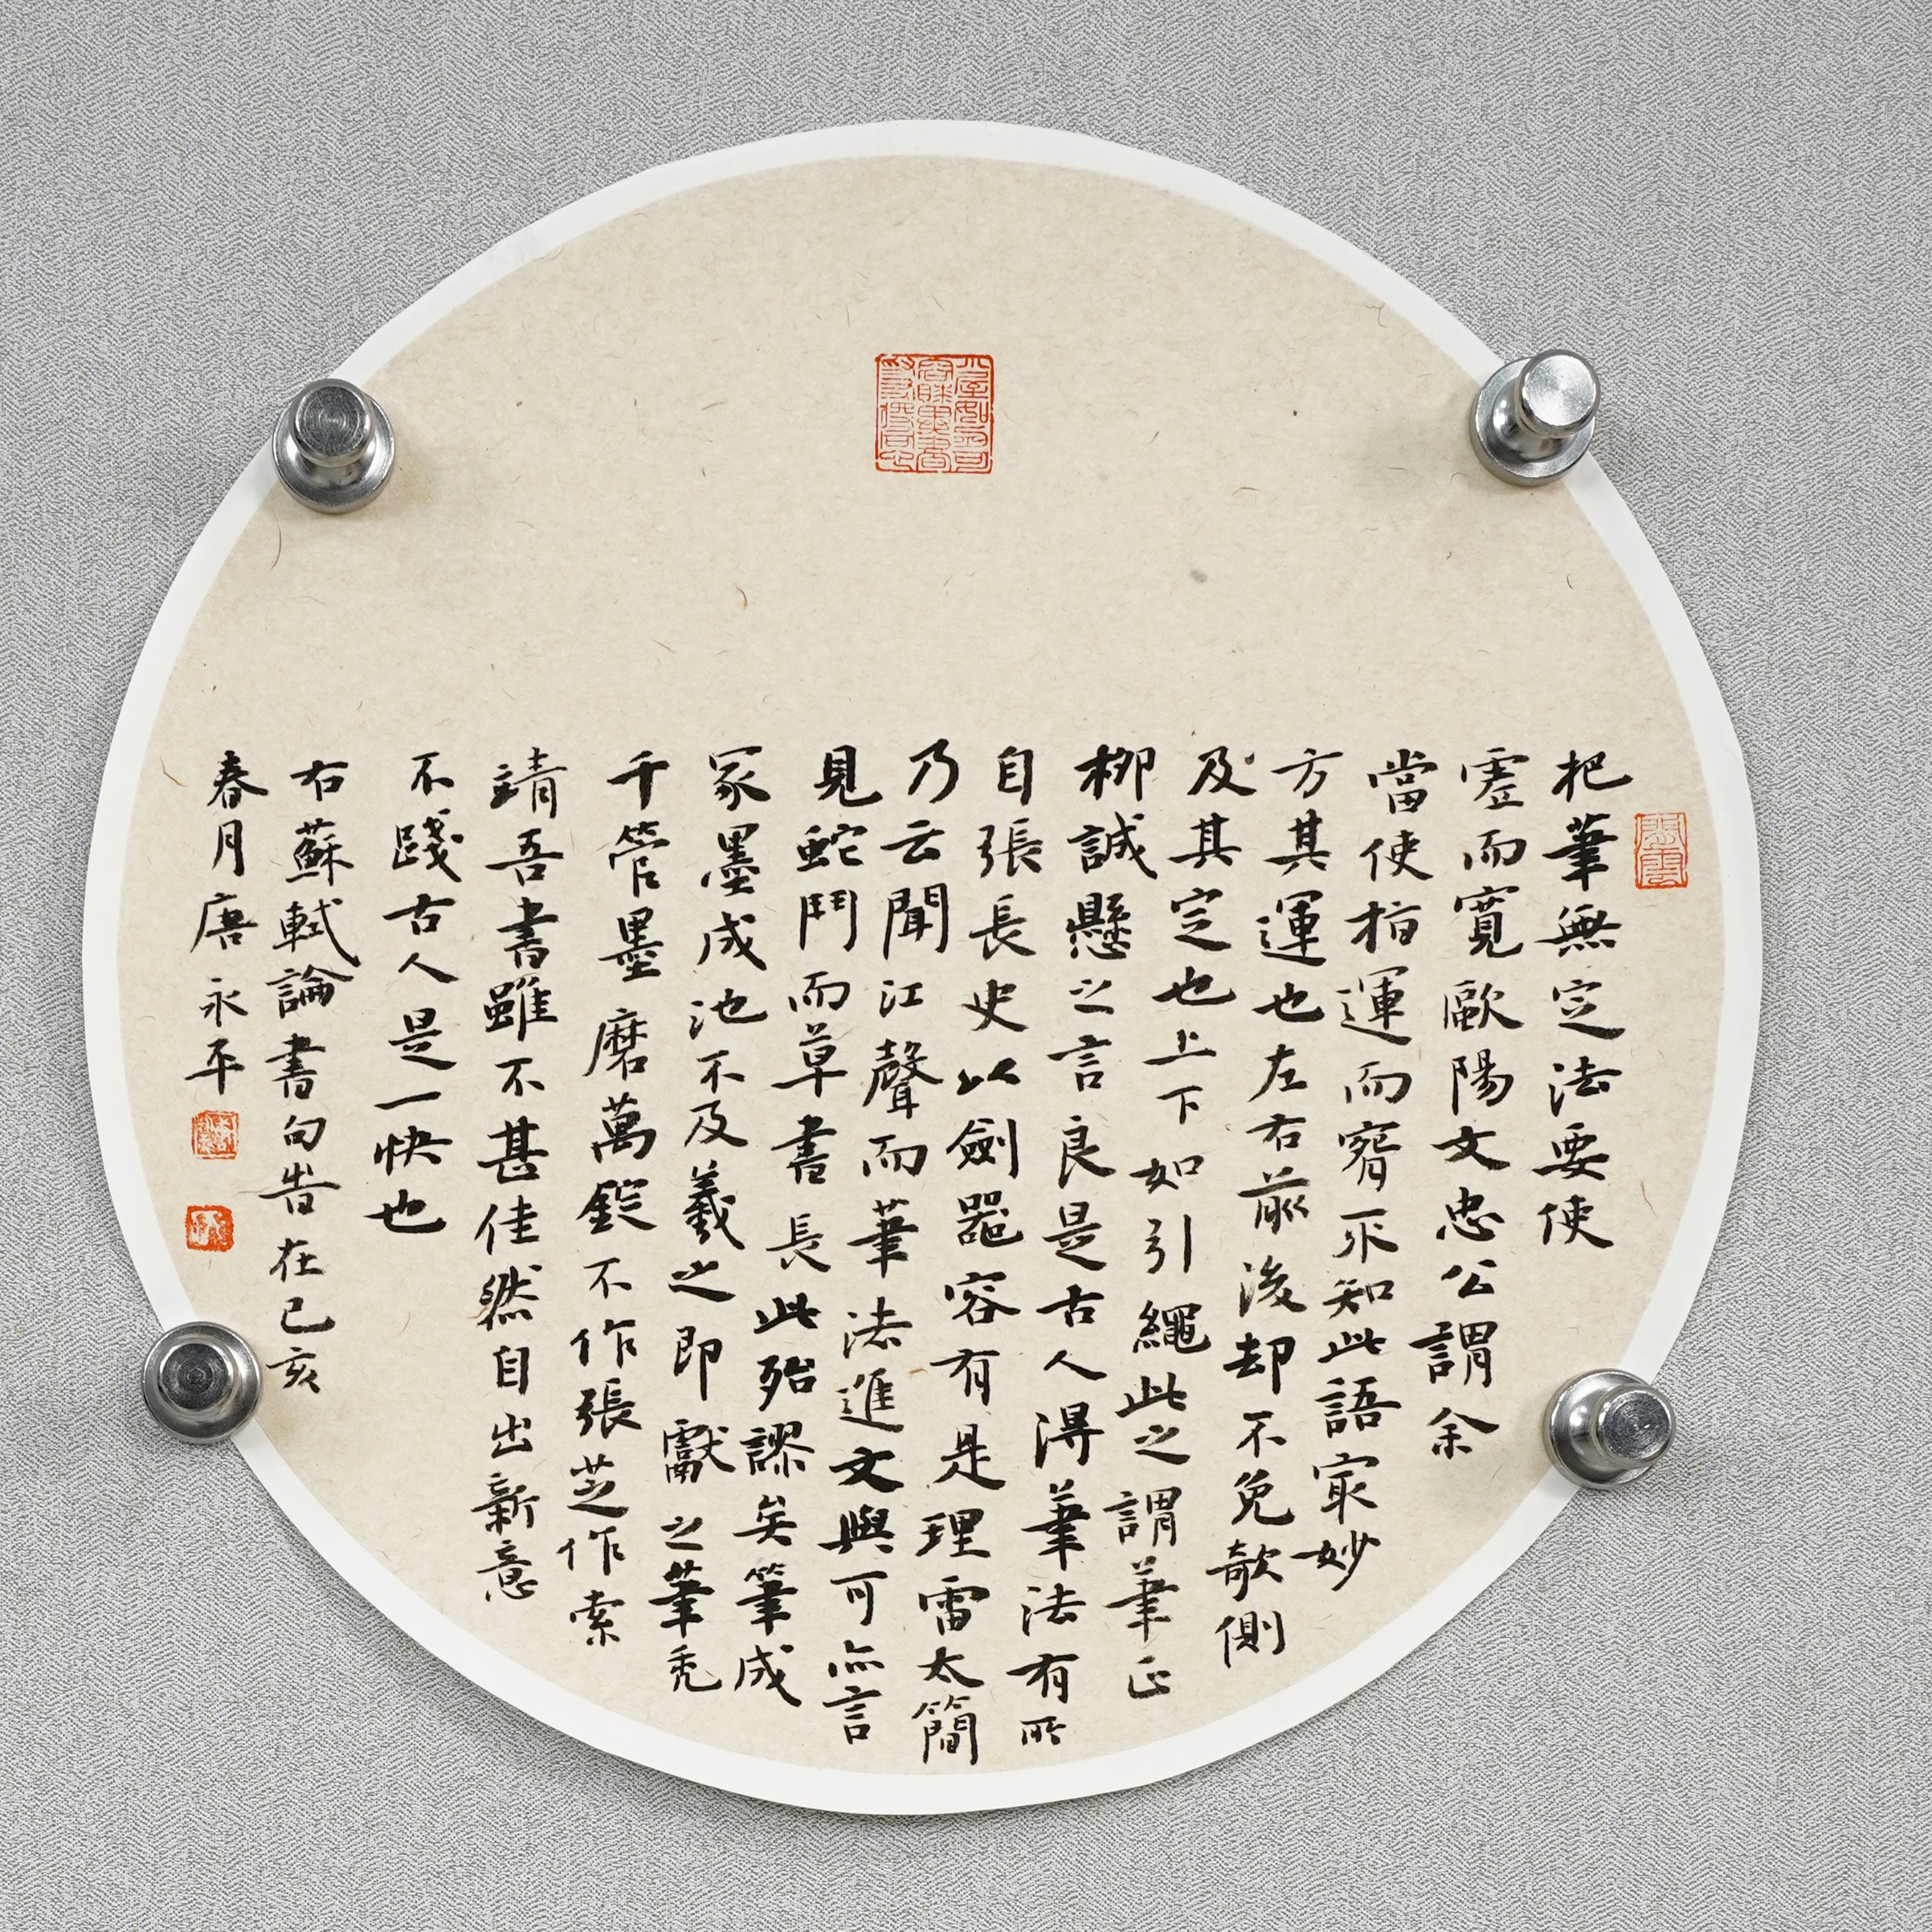 把筆無定法要使
虛而寬歐陽文忠公謂余
當使指運而窘不知此語寂妙
方其運也左右前後却不免欹側
及其定也上下如引繩此之謂筆正
柳誠懸之言良是古人得筆法有所
自張長史以劍器容有是理雷太簡
乃云聞江聲而筆法進文與可亦言
見蛇鬥而草書長此殆謬矣筆成
冢墨成池不及羲之即獻之筆禿
千管墨磨萬錠不作張芝作索
靖吾書雖不甚佳然自出新意
不踐古人是一快也
右蘇軾論書句告在己亥
春月唐永平